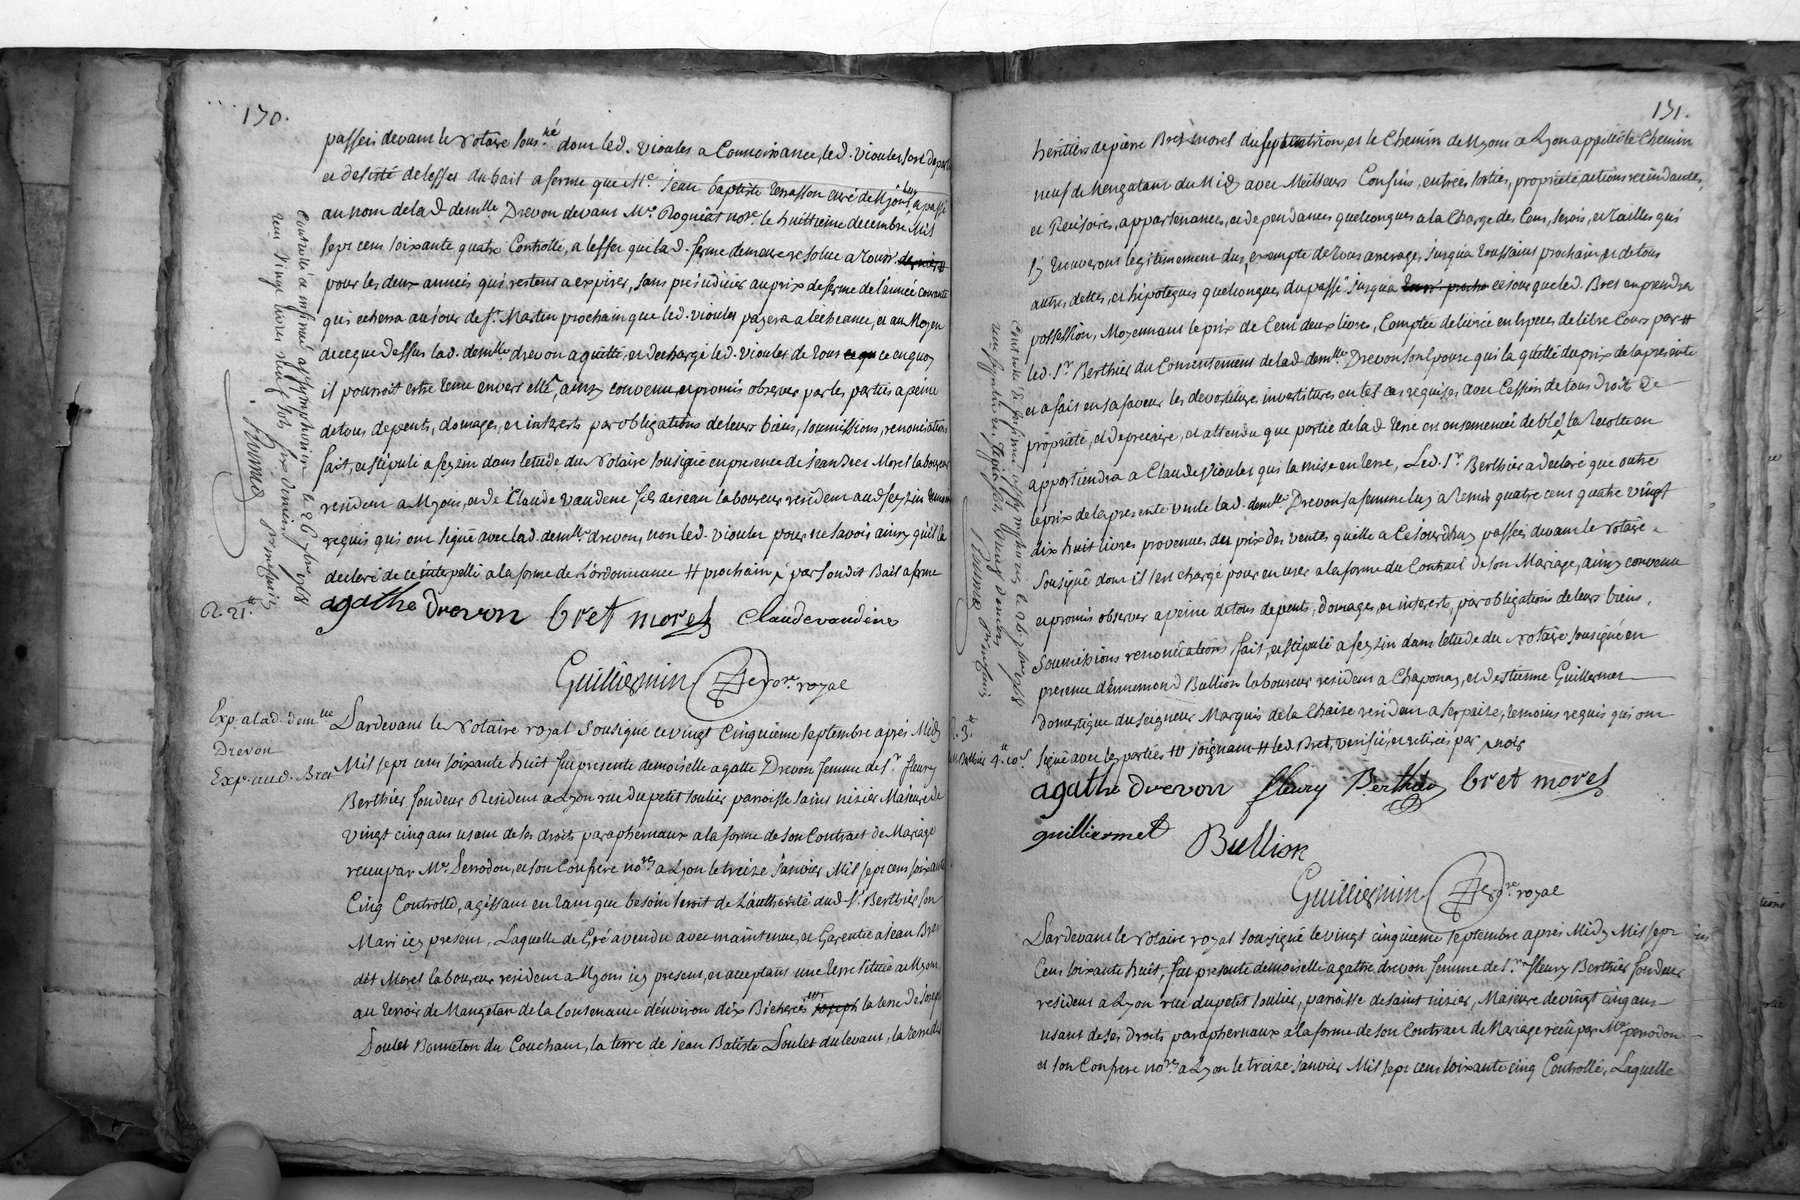 170.
passées devant le Notaire souss.né dont led. Vioulet a Connoissance, led. Vioulet sest departi
et desisté de leffet du bail a ferme que Mre. Jean baptiste terrasson curé de Mions luy a passé
au nom de lad. demlle Drevon devant Me. Roguiat nore. le huittieme decembre Mil
sept cent soixante quatre Controllé, a leffet que lad. ferme demeure resolue a
pour les deux années qui restent a expirer, sans prejudicier au prix de ferme de lannée courante
qui echerra au jour de st. Martin prochain que led. vioulet payera a lecheance, et au Moyen
de ce que dessus lad. demlle drevon a quitté, et decharge led. vioulet de tous ce en quoy
il pourroit estre tenu envers elle, ainsy convenu, et promis observer par les parties a peine
de tous depents, domages, et interets par obligations de leurs biens, soumissions, renonciations
fait, et stipulé a feyzin dans letude du Notaire soussigné en presence de jean bret Morel laboureur
resident a Myons, et de Claude vaudene fils de jean laboureur resident aud. feyzin temoins
requis qui ont signé avec lad. demlle drevon, non led. vioulet pour ne savoir ainsy qu'il l'a
declaré de ce interpellé a la forme de L'ordonnance # prochain # par sondit Bail a ferme
agathe drevon bret morel Claude vaudene
Guilliermin nore. royal
Controllé et insinué a st simphorien le 26 7bre 1768
R. 21.
Exp. a lad. demlle
Drevon
Exp. aud. Bret
Pardevant le Notaire royal soussigné ce vingt cinquieme septembre après Midy
Mil sept cent soixante huit fut presente demoiselle agathe Drevon femme de sr. fleury
Berthier fondeur Resident a Lyon rue du petit soulier parroisse saint nizier Majeure de
vingt cinq ans usant de ses droits paraphernaux a la forme de son Contract de Mariage
recu par Me. Perrodon, et son Confrere nore. a Lyon le treize janvier Mil sept cent soixante
Cinq Controllé, agissant en tant que besoin seroit de L'authorité dud. sr. Berthier son
Mari icy present, Laquelle de Gré a vendu avec maintenue, et Garentie a jean Bret
dit Morel laboureur resident a Myons icy present, et acceptant une terre située a Myons
au terroir de Mangetan de la Contenance d'environ dix Bicherées joseph la terre de joseph
Doulet Bonneton du Couchant, la terre de jean Batiste Doulet du levant, la terre des
171.
heritiers de pierre Bret morel du septentrion, et le Chemin de Myons a Lyon appellé le Chemin
neuf de Mengatant du Midy avec Meilleurs Confins, entrées sorties, proprieté, actions rescindantes,
et Rescisoires, appartenances, et dependances quelconques a la Charge des Cens, servis, et tailles qui
s'y trouveront legitimement dus, exempte de tous arrerages jusqua toussaint prochain, et de tous
autres dettes, et hipoteques quelconques du passé jusqua ce jour que led. Bret en prendra
possession, Moyennant le prix de Cent deux livres, Comptée delivrée en especes de libre Cours par #
led. sr. Berthier du Consentement de lad. demlle. Drevon son Epouse qui la quitté du prix de la presente
et a fait en sa faveur les devestitures investitures en tel cas requises avec Cession de tous droits de
proprieté, et de precaire, et attendu que partie de lad. terre en ensemencée de blé, la Recolte en
appartiendra a Claude Vioulet qui la mise en terre, Led. sr. Berthier a declaré que outre
le prix de la presente vente lad. demlle. Drevon sa femme luy a remis quatre cent quatre vingt
dix huit livres provenues du prix des ventes qu'elle a Cejourdhuy passées devant le Notaire
soussigné dont il sest chargé pour en user a la forme du Contract de son Mariage, ainsy convenu
et promis observer a peine de tous depents, domages, et interets, par obligations de leurs biens,
soumissions renonciations fait, et stipulé a feyzin dans letude du Notaire soussigné en
presence d'ennemond Bullion laboureur resident a Chaponay, et destienne Guillermet
domestique du seigneur Marquis de la Chaize resident a serpaize, temoins requis qui ont
signé avec les parties # joignant # led. Bret, verifié, et
agathe drevon fleury Berthier bret morel
guilliermet Bullion
Guilliermin nore. royal
Pardevant le Notaire royal soussigné le vingt cinquieme septembre après Midy Mil sept
Cent soixante huit, fut presente demoiselle agathe drevon femme de sr. fleury Berthier fondeur
resident a Lyon rue du petit soulier, parroisse de saint nizier, Majeure de vingt cinq ans
usant de ses droits paraphernaux a la forme de son Contract de Mariage recu par Me perrodon
et son Confrere nore. a Lyon le treize janvier Mil sept cent soixante cinq Controllé, Laquelle